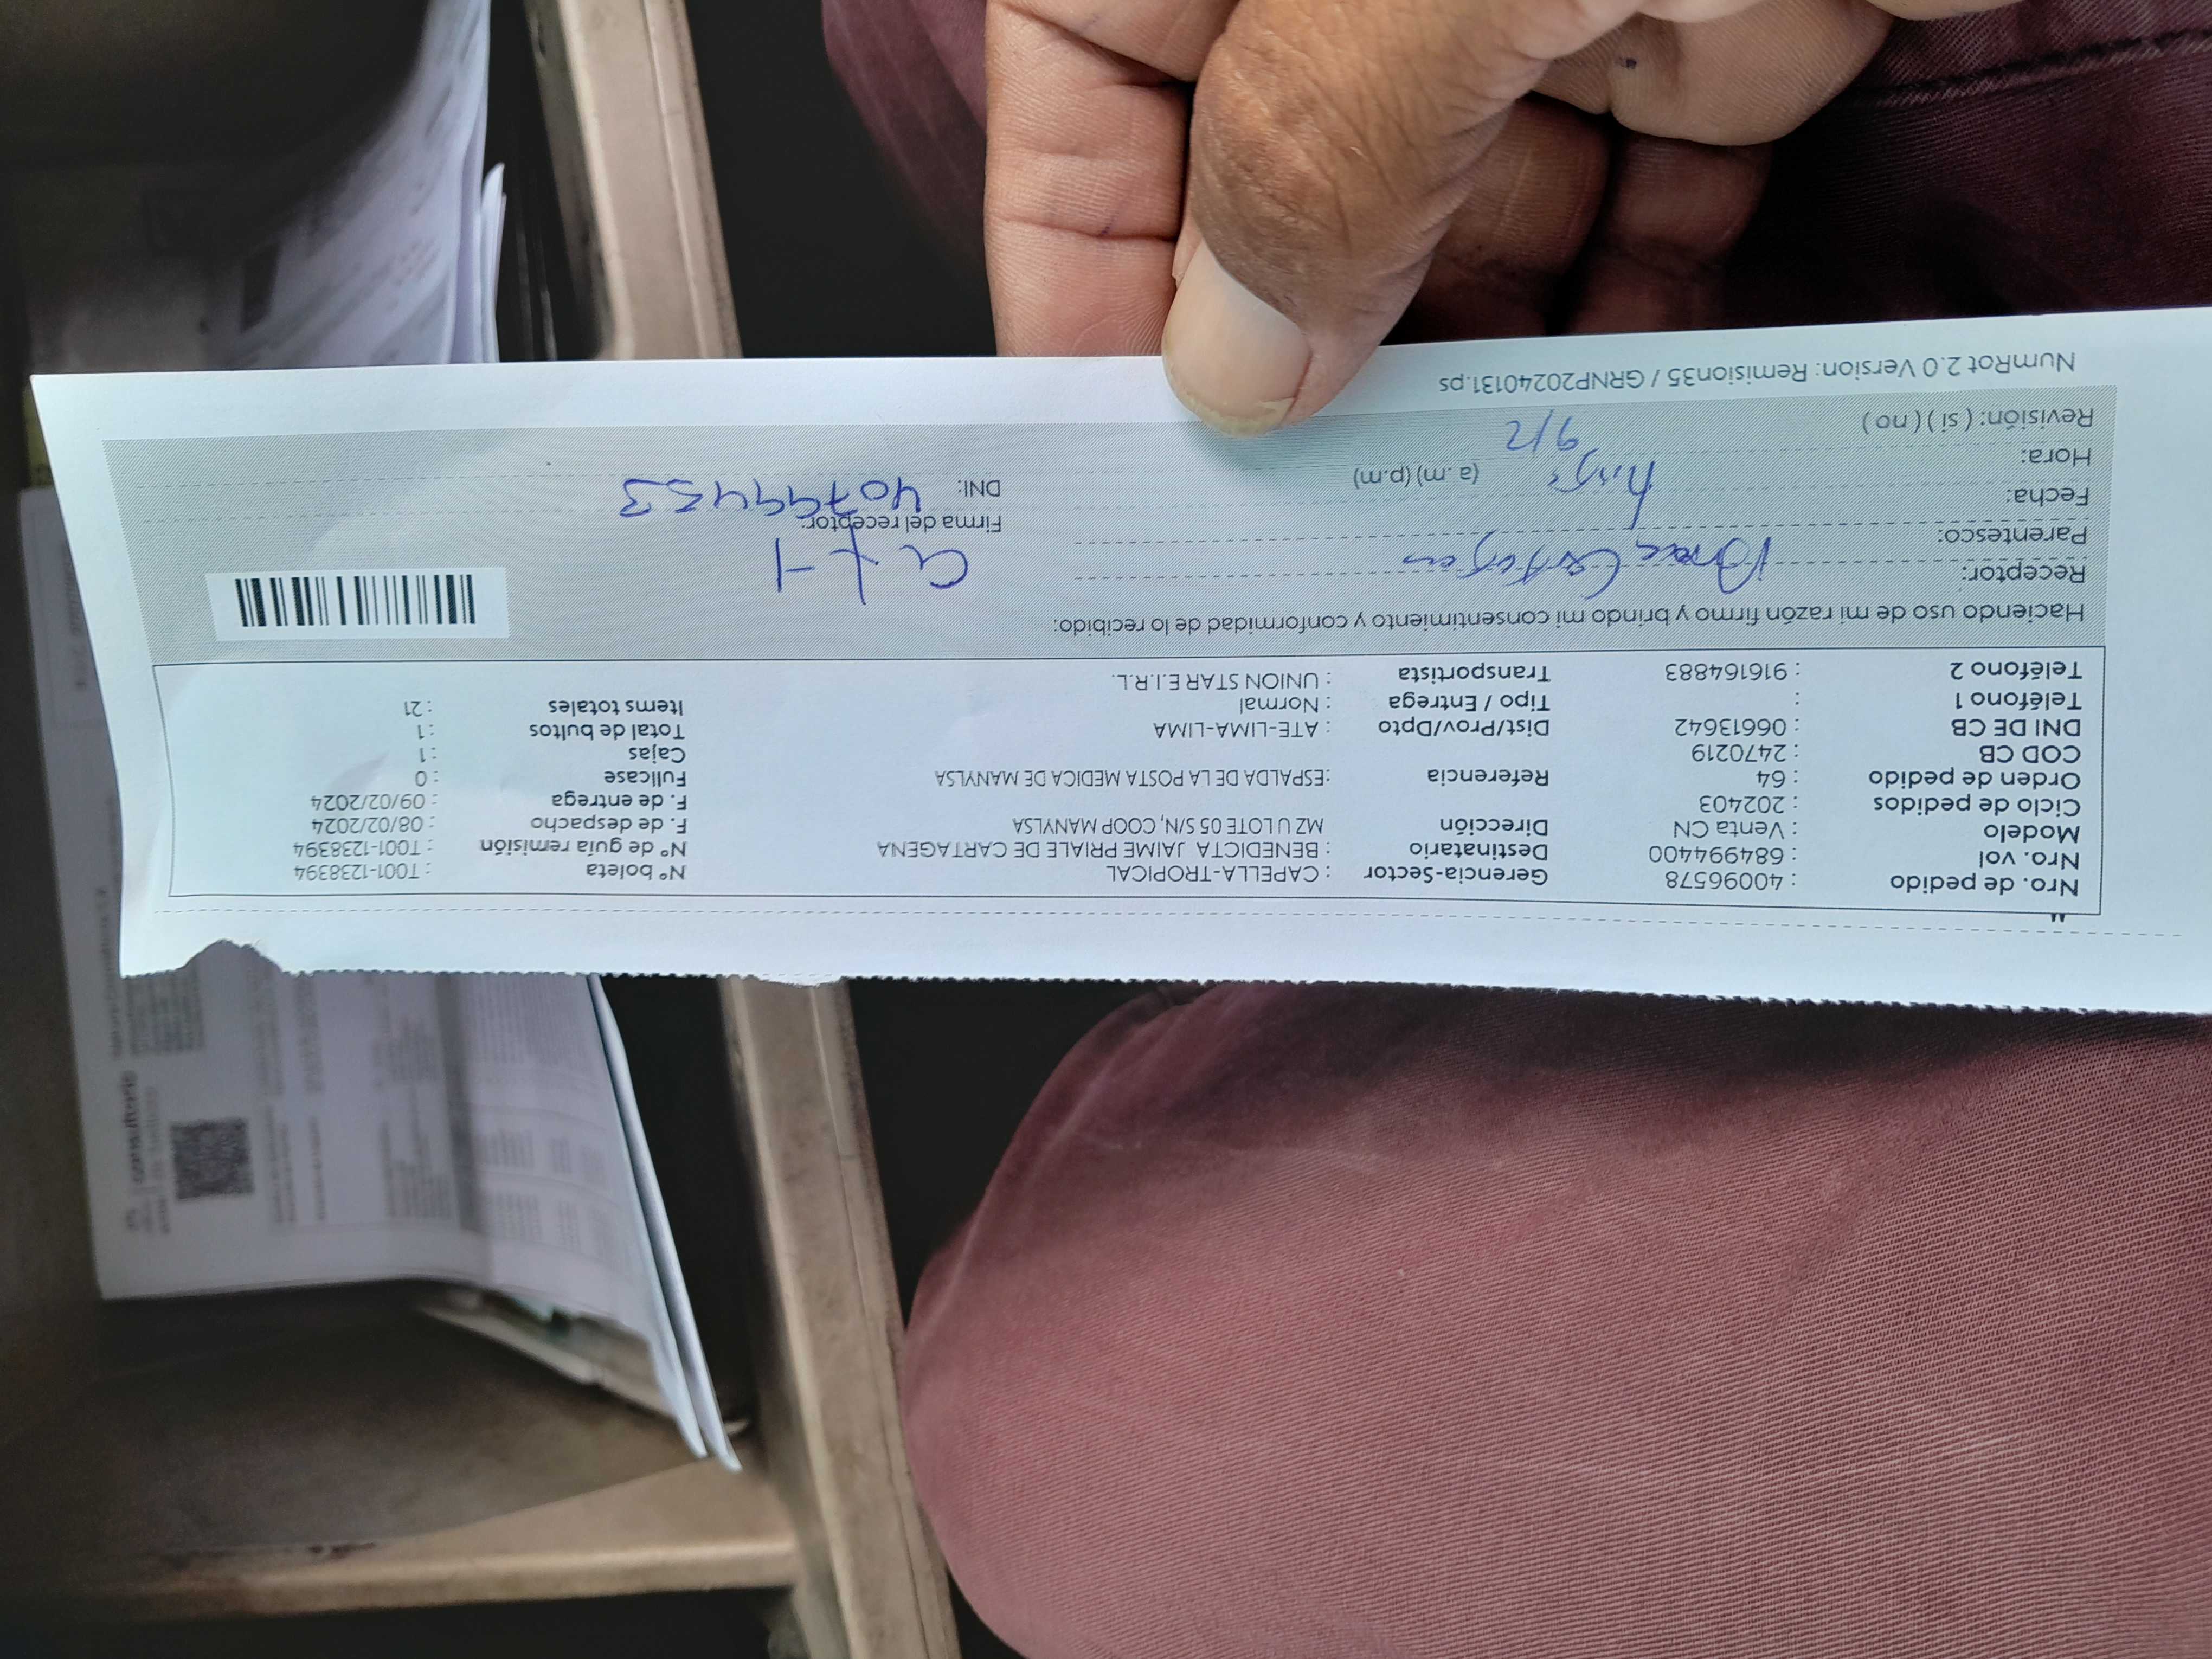 Nro. de pedido : 40096578 Gerencia-Sector : CAPELLA-TROPICAL Nº boleta : T001-1238394
Nro. vol : 684994400 Destinatario : BENEDICTA JAIME PRIALE DE CARTAGENA Nº de guía remisión : T001-1238394
Modelo : Venta CN Dirección MZ U LOTE 05 S/N, COOP MANYLSA F. de despacho : 08/02/2024
Ciclo de pedidos : 202403 F. de entrega : 09/02/2024
Orden de pedido : 64 Referencia :ESPALDA DE LA POSTA MEDICA DE MANYLSA Fullcase : 0
COD CB : 2470219 Cajas : 1
DNI DE CB : 06613642 Dist/Prov/Dpto : ATE-LIMA-LIMA Total de bultos : 1
Teléfono 1 : Tipo / Entrega : Normal Items totales : 21
Teléfono 2 : 916164883 Transportista : UNION STAR E.I.R.L.
Haciendo uso de mi razón firmo y brindo mi consentimiento y conformidad de lo recibido:
Receptor:
Parentesco: Firma del receptor:
Fecha: DNI: 40799453
Hora: (a.m) (p.m)
9/2
Revisión: ( si ) ( no )
NumRot 2.0 Version: Remision35 / GRNP20240131.ps